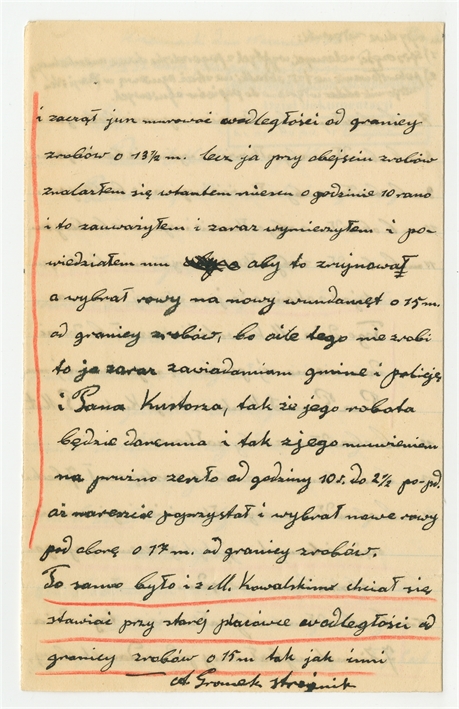 i zaczął jun murować wodległości od granicy
zrobów o 13½ m. lecz ja przy obejściu zrobów
znalazłem się wtamtem miescu o godzinie 10 rano
i to zauważyłem i zaraz wymierzyłem i po-
wiedziałem mu aby to zrujnował
a wybrał rowy na nowy wundamęt o 15 m.
od granicy zrobów, bo oile tego nie zrobi
to ja zaraz zawiadamiam gminę i policję
i Pana Kustorza, tak że jego robota
będzie daremna i tak zjego muwieniem
na prużno zeszło od godziny 10 r. do 2½ po-pd.
aż nareszcie poprzystał i wybrał nowe rowy
pod oborę o 17 m. od granicy zrobów.
To samo było i z M. Kowalskimo chciał się
stawiać przy starej placówce wodległości od
granicy zrobów o 15 m tak jak inni
A. Gromek strażnik